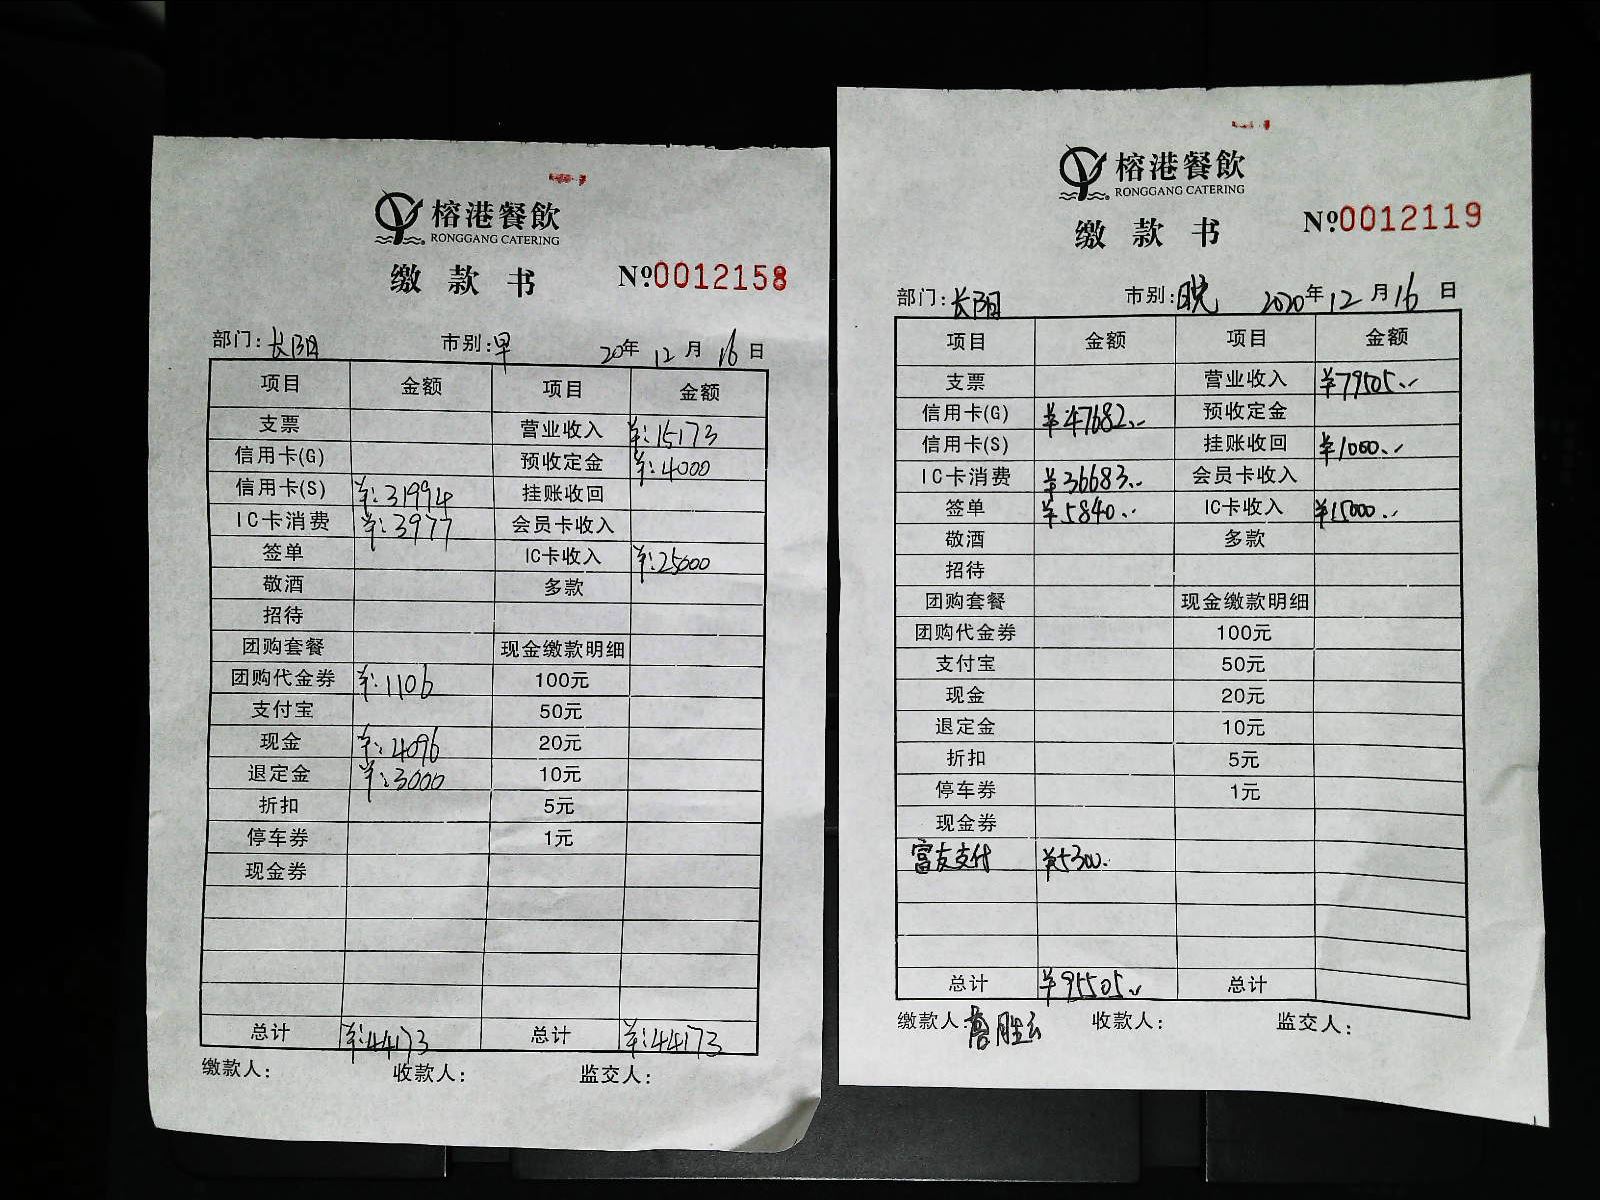 榕港餐飲
RONGGANG CATERING
缴款书
№:0012158
部门:长阳 市别:早 20年12月16日
项目 金额 项目 金额
支票 营业收入 ¥:15173
信用卡(G) 预收定金 ¥:4000
信用卡(S) ¥:31994 挂账收回
IC卡消费 ¥:3977 会员卡收入
签单 IC卡收入 ¥:25000
敬酒 多款
招待
团购套餐 现金缴款明细
团购代金券 ¥:1106 100元
支付宝 50元
现金 ¥:4096 20元
退定金 ¥:3000 10元
折扣 5元
停车券 1元
现金券
总计 ¥:44173 总计 ¥:44173
缴款人: 收款人: 监交人:
榕港餐飲
RONGGANG CATERING
缴款书
№:0012119
部门:长阳 市别:晚 2020年12月16日
项目 金额 项目 金额
支票 营业收入 ¥79505.
信用卡(G) ¥47682. 预收定金
信用卡(S) 挂账收回 ¥1000.
IC卡消费 ¥36683. 会员卡收入
签单 ¥5840. IC卡收入 ¥15000.
敬酒 多款
招待
团购套餐 现金缴款明细
团购代金券 100元
支付宝 50元
现金 20元
退定金 10元
折扣 5元
停车券 1元
现金券
富友支付 ¥5300.
总计 ¥95505. 总计
缴款人: 收款人: 监交人: